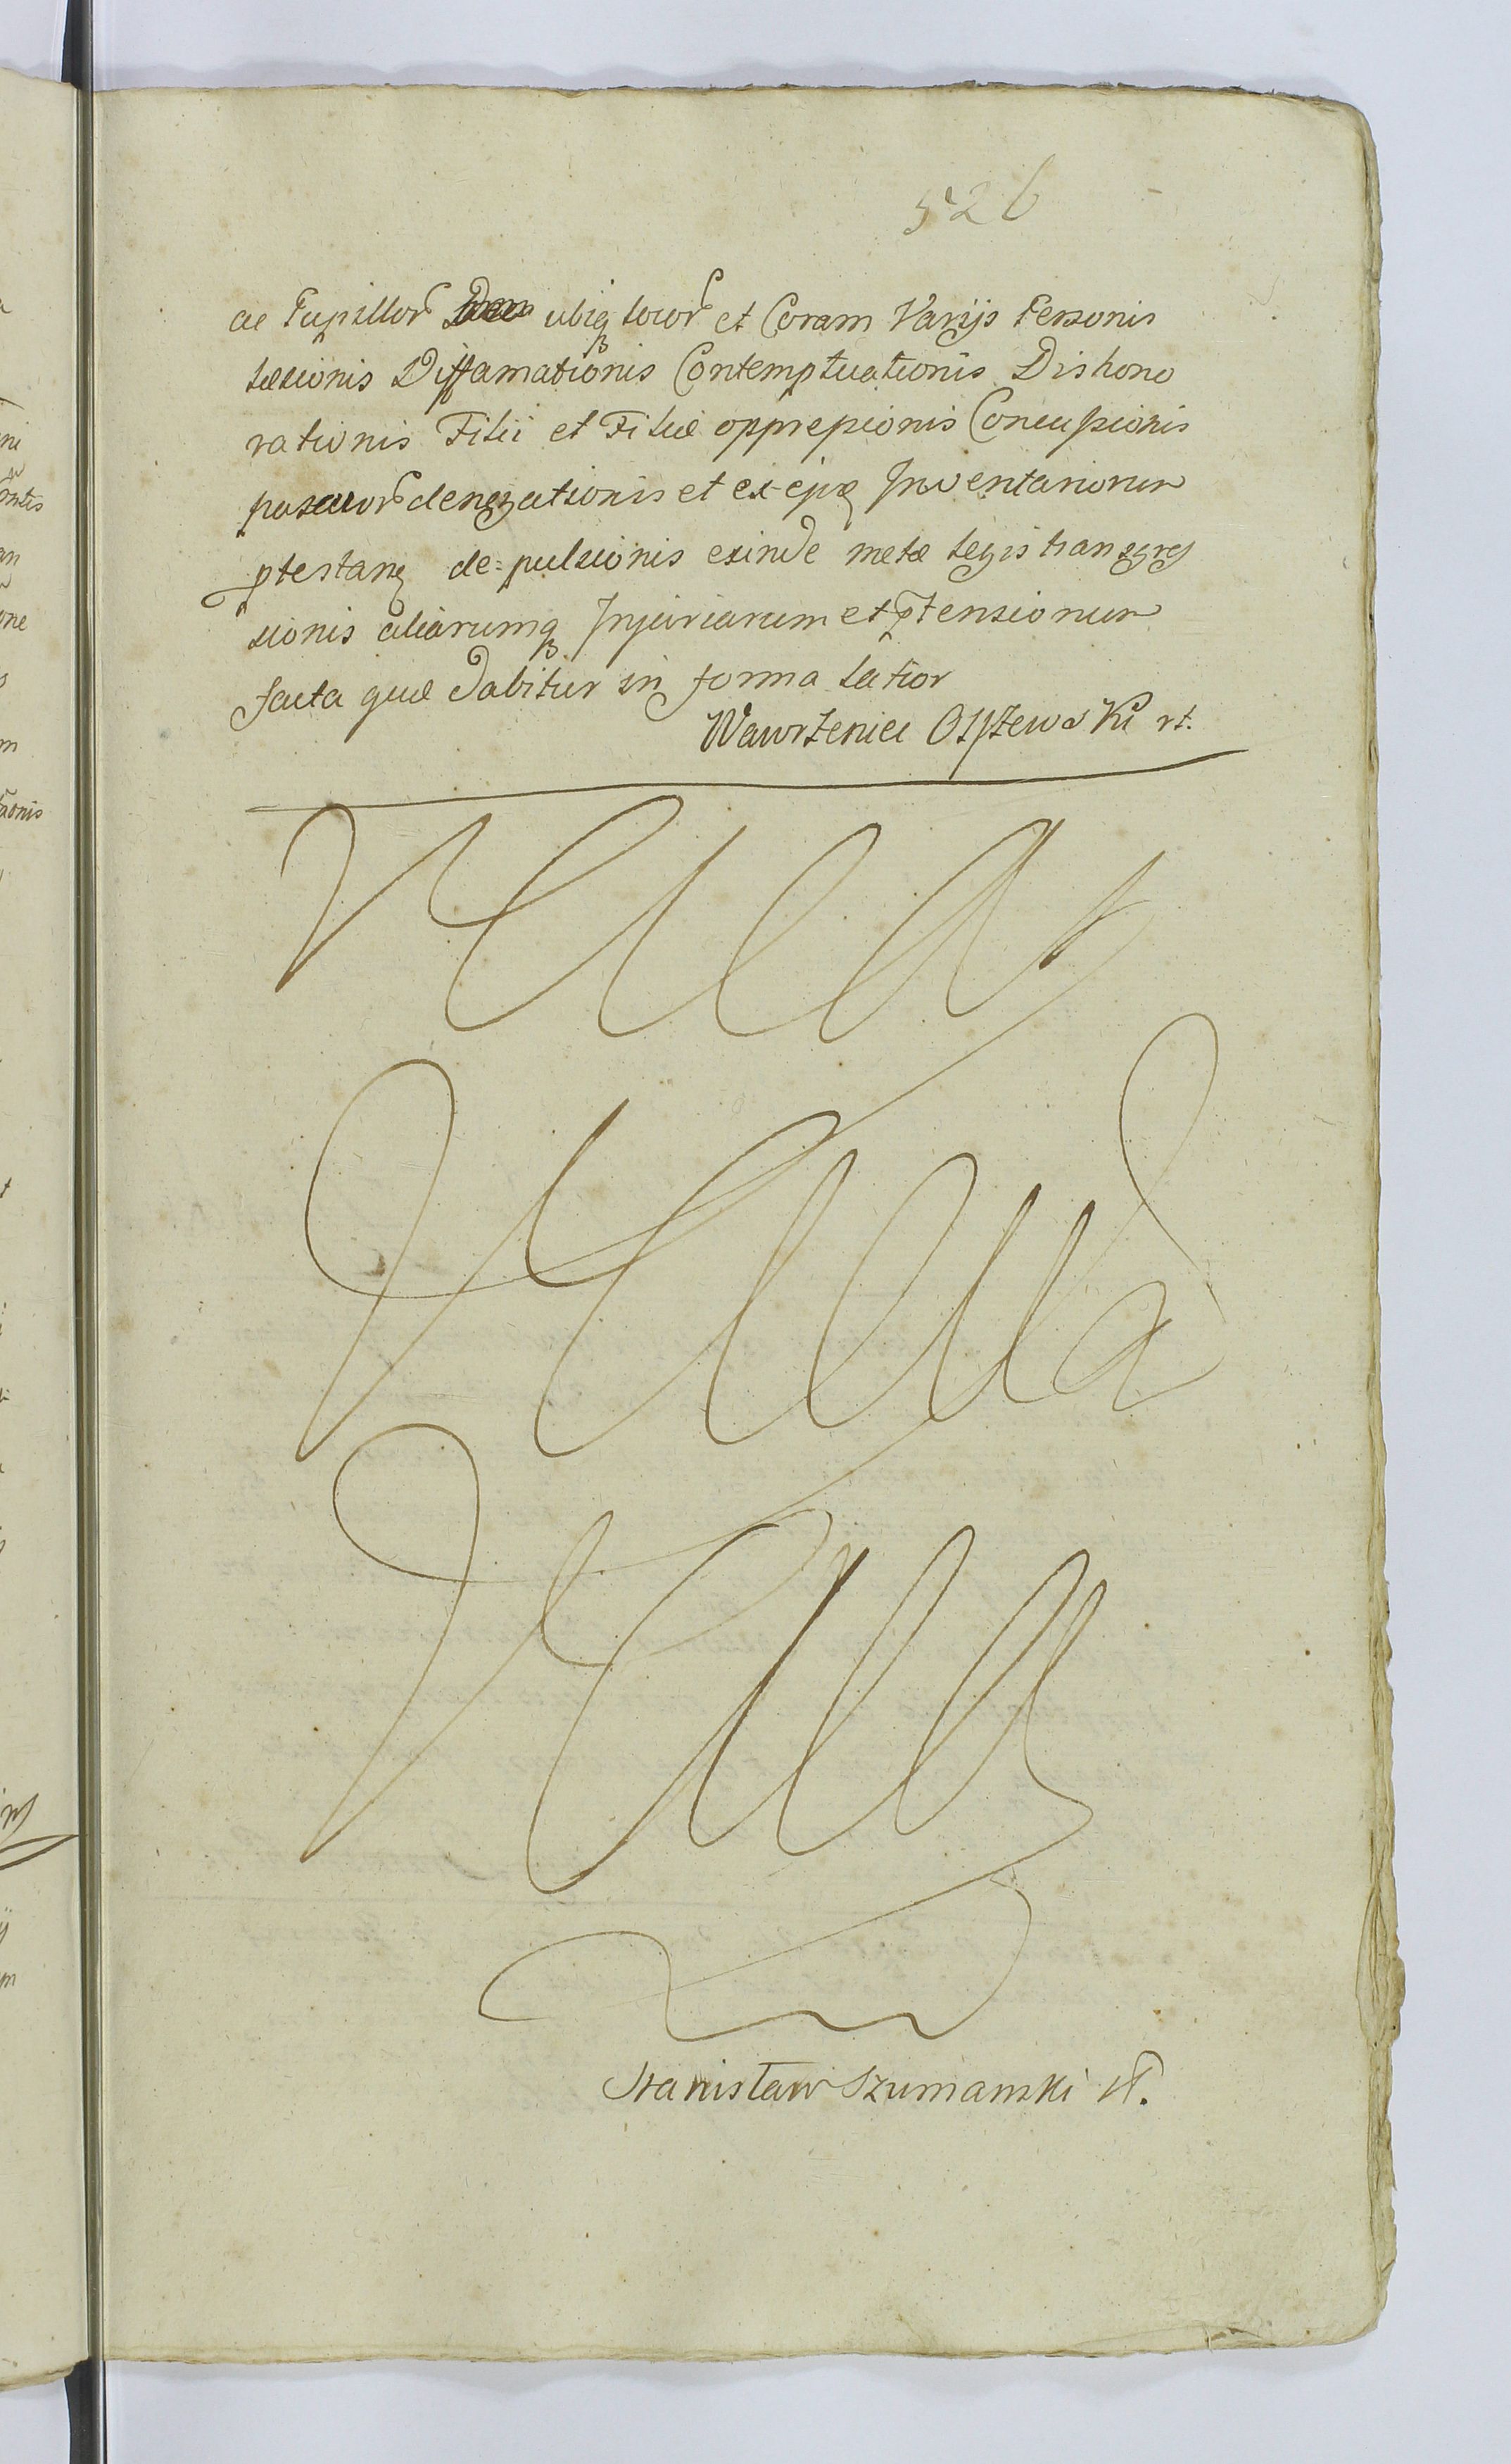 526
ac Pupillor ubiq locor et Coram Varijs Personis
læsionis Diffamationis Contemptuationis Dishono
rationis Filii et Filiæ oppressionis Concussionis
pascuor denegationis et ex ejsq Inventariorum
ptestang de=pulsionis exinde metæ legis transgres
sionis aliarumq Injuriarum et ptensionum
facta quæ dabitur in forma latior
Wawrzeniec Olszewski rt.
Stanisław Szumanski rt.